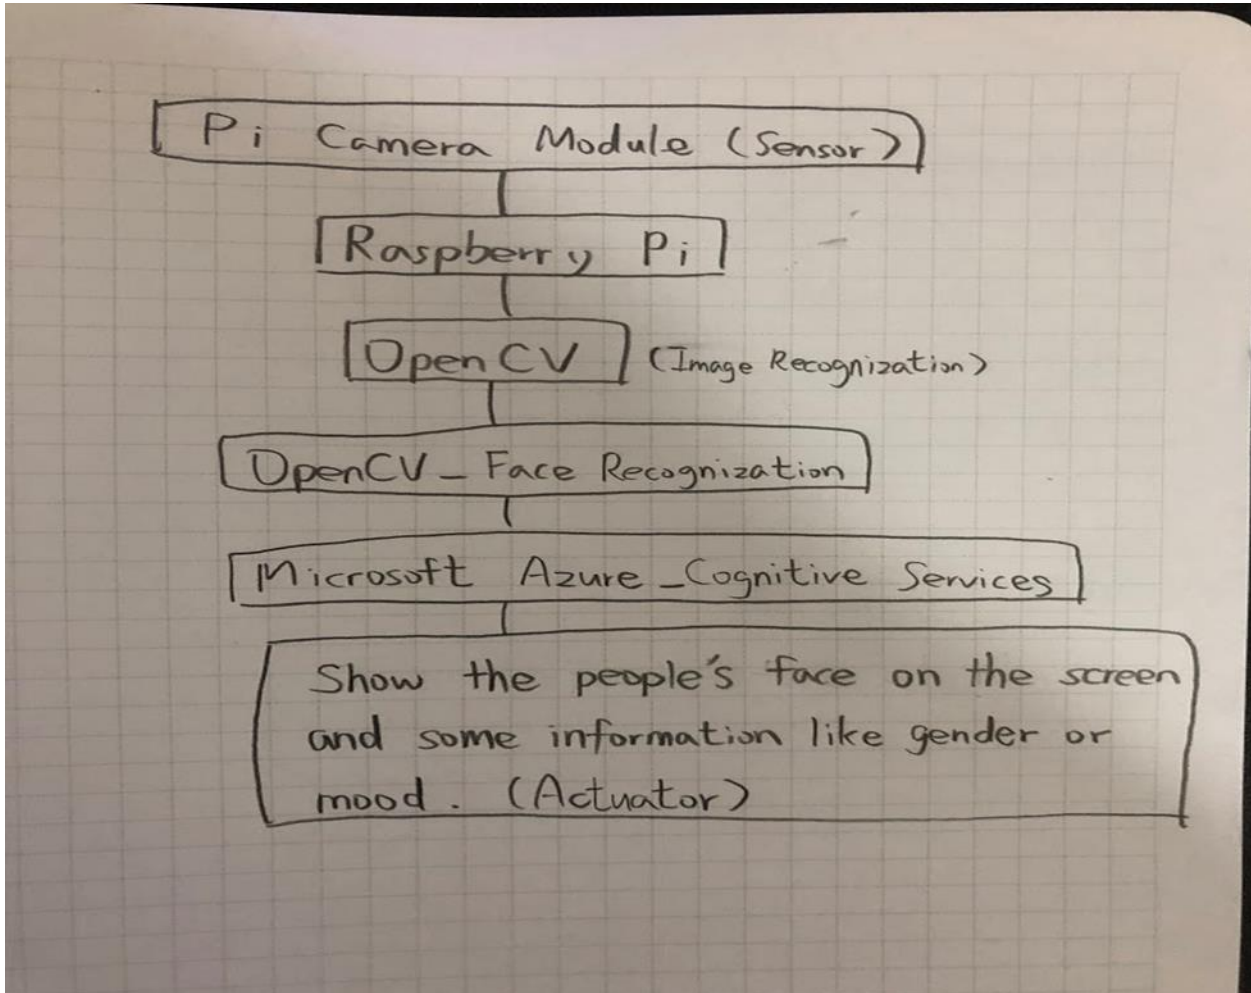 Pi Camera Module (Sensor)
Raspberry Pi
OpenCV (Image Recognization)
OpenCV_Face Recognization
Microsoft Azure_Cognitive Services
Show the people's face on the screen
and some information like gender or
mood. (Actuator)